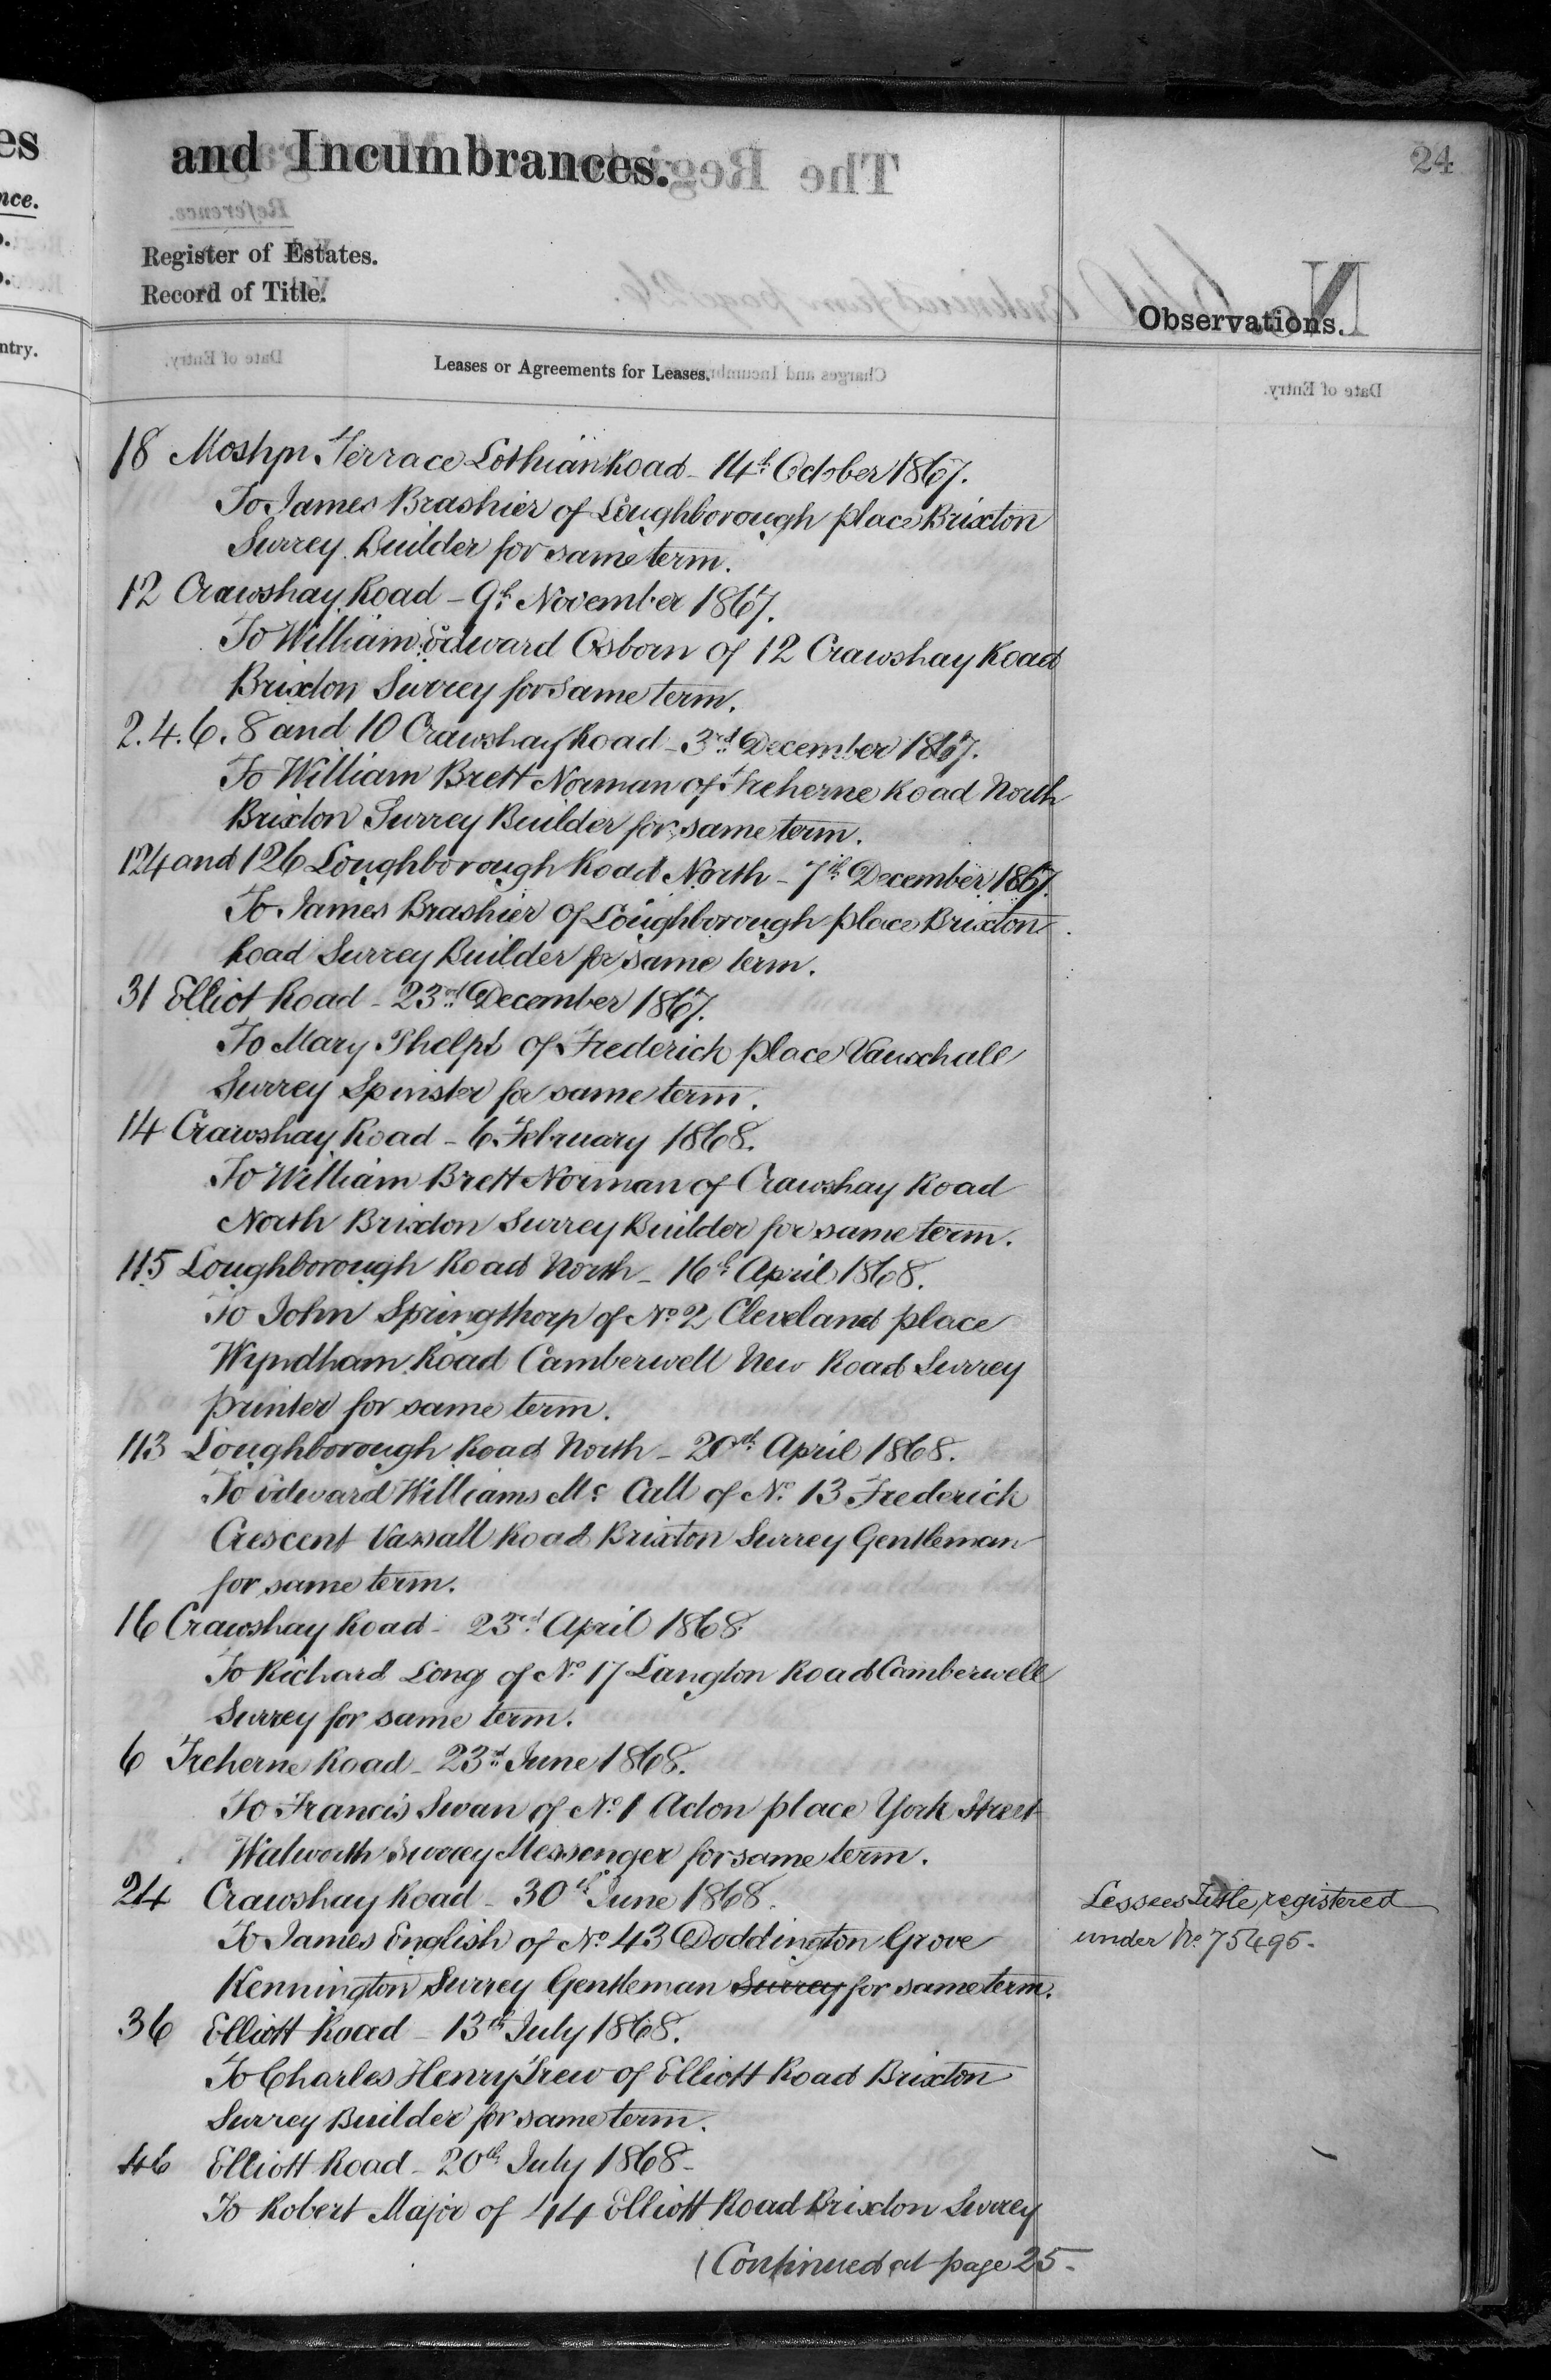 24
and Incumbrances.
Register of Estates.
Record of Title.
Observations.
Leases or Agreements for Leases.
18 Mostyn Terrace Lothian Road - 14th October 1867.
To James Brashier of Loughborough place Brixton
Surrey Builder for same term.
12 Crawshay Road - 9th November 1867.
To William Edward Osborn of 12 Crawshay Road
Brixton Surrey for same term.
2.4.6.8 and 10 Crawshay Road - 3rd December 1867.
To William Brett Norman of Treherne Road North
Brixton Surrey Builder for same term.
124 and 126 Loughborough Road North - 7th December 1867.
To James Brashier of Loughborough place Brixton
Road Surrey Builder for same term.
31 Elliot Road - 23rd December 1867.
To Mary Phelps of Frederick place Vauxhall
Surrey Spinster for same term.
14 Crawshay Road - 6 February 1868.
To William Brett Norman of Crawshay Road
North Brixton Surrey Builder for same term.
115 Loughborough Road North - 16th April 1868.
To John Springthorp of No 2 Cleveland place
Wyndham Road Camberwell New Road Surrey
printer for same term.
113 Loughborough Road North - 20th April 1868.
To Edward Williams Mc Call of No 13 Frederick
Crescent Vassall Road Brixton Surrey Gentleman
for same term.
16 Crawshay Road - 23rd April 1868
To Richard Long of No 17 Langton Road Camberwell
Surrey for same term.
6 Treherne Road - 23rd June 1868.
To Francis Swan of No 1 Acton place York Street
Walworth Surrey Messenger for same term.
24 Crawshay Road - 30th June 1868.
To James English of No 43 Doddington Grove
Kennington Surrey Gentleman Surrey for same term.
Lessees Title registered
under No 75495.
36 Elliott Road - 13th July 1868.
To Charles Henry Trew of Elliott Road Brixton
Surrey Builder for same term.
46 Elliott Road - 20th July 1868 -
To Robert Major of 44 Elliott Road Brixton Surrey
(Continued at page 25.